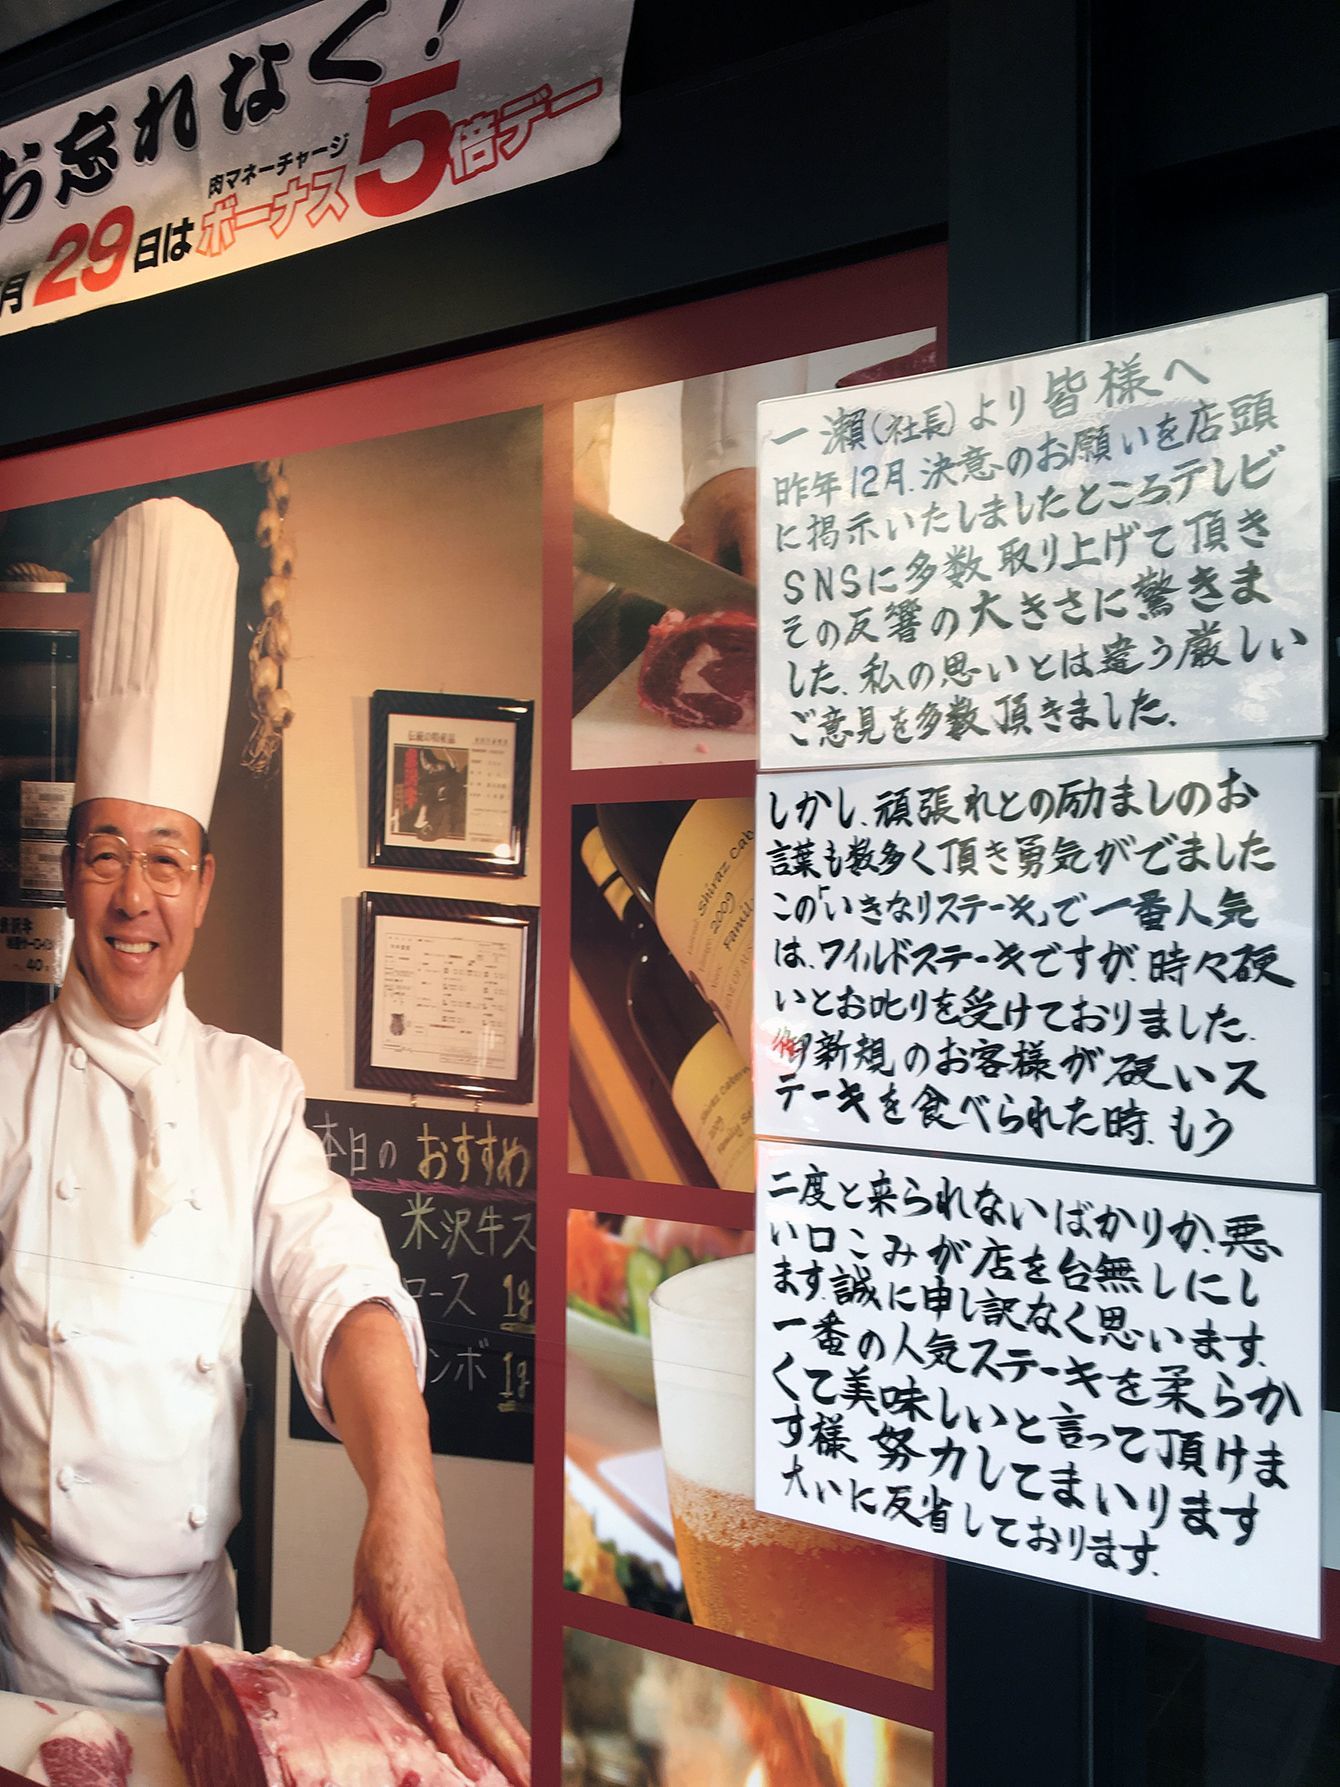 お忘れなく!
月29日は
肉マネーチャージ
ボーナス5倍デー
一瀬(社長)より皆様へ
昨年12月、決意のお願いを店頭
に掲示いたしましたところ、テレビ
SNSに多数取り上げて頂き
その反響の大きさに驚きま
した、私の思いとは違う厳しい
ご意見を多数頂きました、
しかし、頑張れとの励ましのお
言葉も数多く頂き勇気がでました
この「いきなりステーキ」で一番人気
は、ワイルドステーキですが、時々硬
いとお叱りを受けておりました、
御新規のお客様が硬いス
テーキを食べられた時、もう
二度と来られないばかりか、悪
い口こみが店を台無しにし
ます、誠に申し訳なく思います、
一番の人気ステーキを柔らか
くて美味しいと言って頂けま
す様、努力してまいります
大いに反省しております、
伝統の特産品
本日のおすすめ
米沢牛ス
ロース 1g
ンボ 1g
40
Shiraz Cab
2009
Family
Shiraz Cabern
2009